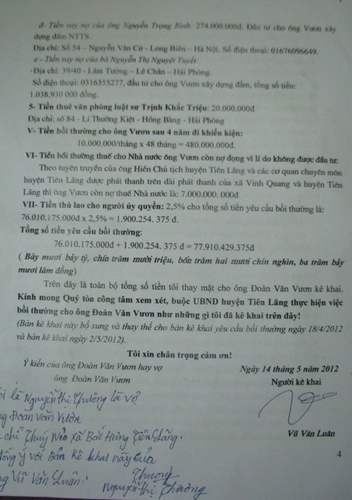 đ- Tiền vay nợ của ông Nguyễn Trọng Bình: 274.000.000đ. Đầu tư cho ông Vươn xây
dựng đầm NTTS.
Địa chỉ: Số 54 – Nguyễn Văn Cừ - Long Biên – Hà Nội. Số điện thoại: 01676096649.
e - Tiền vay nợ của bà Nguyễn Thị Nguyệt Tuyết:
- Địa chỉ: 39/40 - Lâm Tường – Lê Chân – Hải Phòng.
Số điện thoại: 0316355277, đầu tư cho ông Vươn xây dựng đầm, tổng số tiền:
1.038.930 000 đồng.
5- Tiền thuê văn phòng luật sư Trịnh Khắc Triệu: 20.000.000đ
Địa chỉ: số 84 - Lí Thường Kiệt - Hồng Bàng - Hải Phòng
V- Tiền bồi thường cho ông Vươn sau 4 năm đi khiếu kiện:
10.000.000/tháng x 48 tháng = 480.000.000đ.
VI- Tiền bồi thường thuế cho Nhà nước ông Vươn còn nợ đọng vì lí do không được đầu tư:
Theo tuyên truyền của ông Hiền Chủ tịch huyện Tiên Lãng và các cơ quan chuyên môn
huyện Tiên Lãng được phát thanh trên đài phát thanh của xã Vinh Quang và huyện Tiên
Lãng thì ông Vươn còn nợ thuế Nhà nước là: 7.000.000. 000đ
VII- Tiền thù lao cho người ủy quyền: 2,5% cho tổng số tiền yêu cầu bồi thường là:
76.010.175.000đ x 2,5% = 1.900.254. 375 đ.
Tổng số tiền yêu cầu bồi thường:
76.010.175.000đ + 1.900.254. 375 đ = 77.910.429.375đ
( Bảy mươi bảy tỷ, chín trăm mười triệu, bốn trăm hai mươi chín nghìn, ba trăm bảy
mươi lăm đồng)
Trên đây là toàn bộ tổng số tiền tôi thay mặt cho ông Đoàn Văn Vươn kê khai.
Kính mong Quý tòa công tâm xem xét, buộc UBND huyện Tiên Lãng thực hiện việc
bồi thường cho ông Đoàn Văn Vươn như những gì tôi đã kê khai trên đây!
(Bản kê khai này bổ sung và thay thế cho bản kê khai yêu cầu bồi thường ngày 18/4/2012
và bản kê khai ngày 2/5/2012).
Tôi xin chân trọng cảm ơn!
Ý kiến của ông Đoàn Văn Vươn hay vợ
ông Đoàn Văn Vươn
Ngày 14 tháng 5 năm 2012
Người kê khai
Vũ Văn Luân
4
là Nguyễn Thị Thương là vợ
Đoàn Văn Vươn
chỉ Thuý Nẻo xã Bắc Hưng Tiên Lãng.
đồng ý với Bản kê khai này của
Vũ Văn Luân.
Thương
Nguyễn Thị Thương